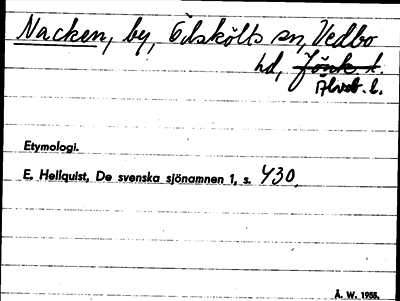 Nacken, by, Ödskölts sn, Vedbo
hd, Jönk. l.
Älvsb. l.
Etymologi.
E. Hellquist, De svenska sjönamnen 1, s. 430.
Å. W. 1955.